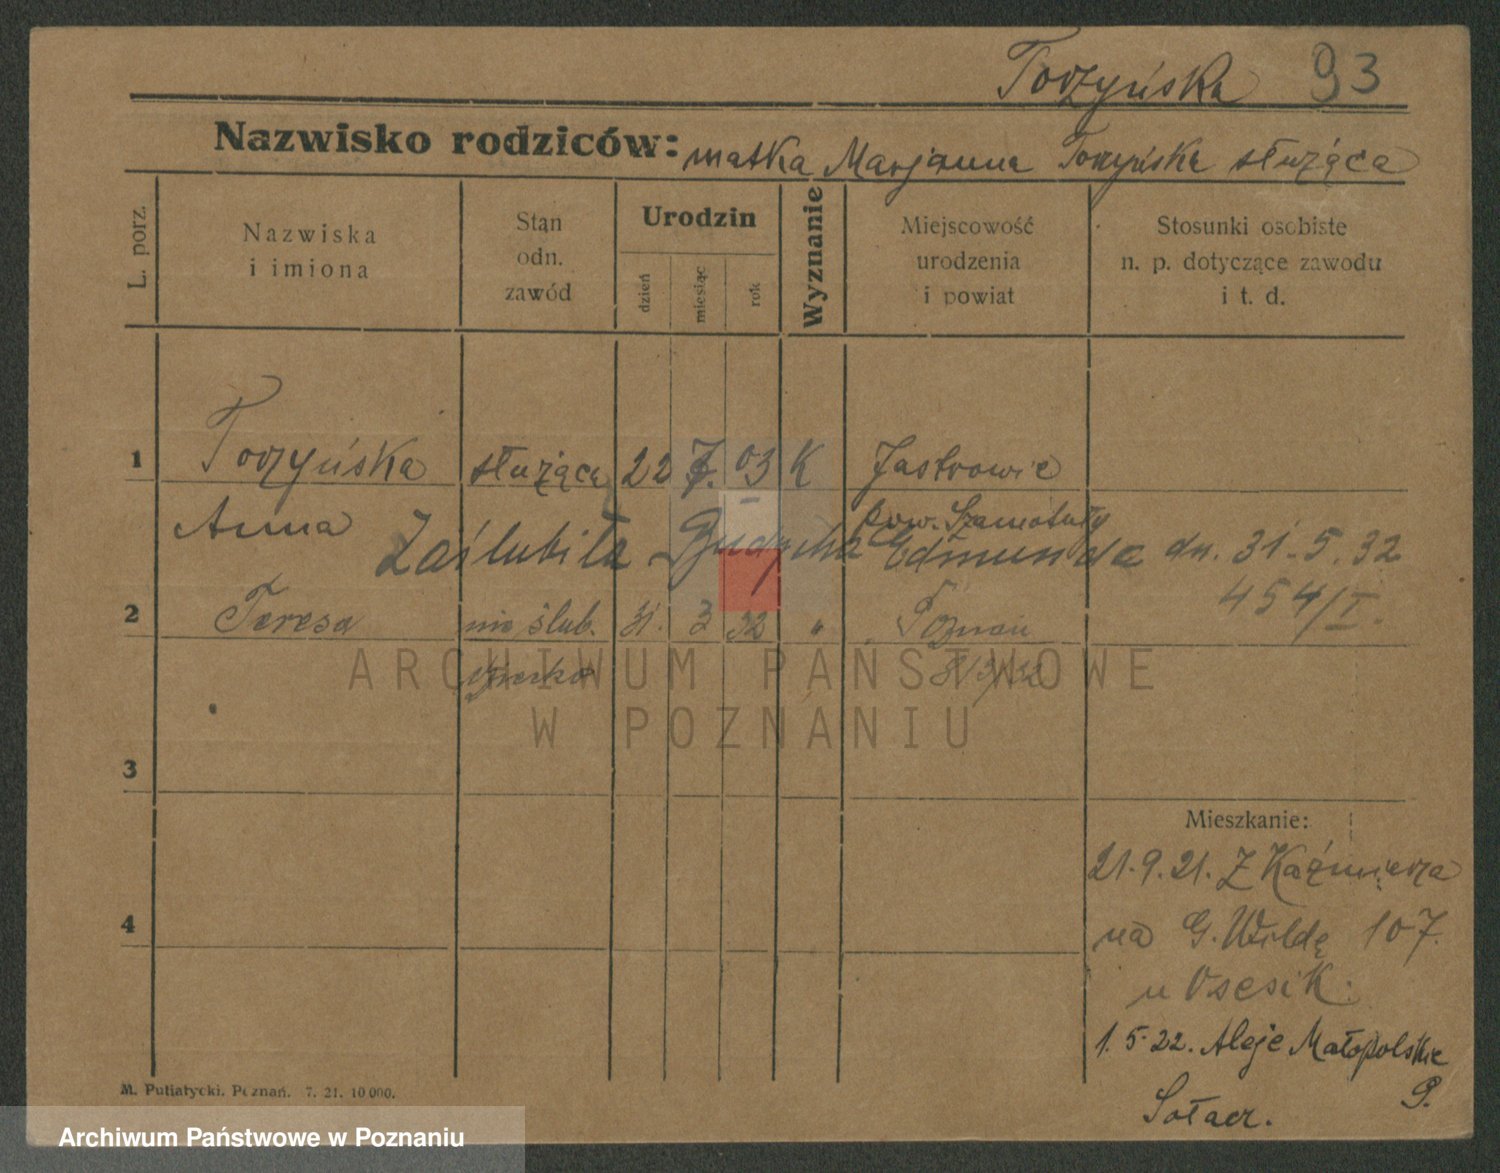 Torzyńska 93
Nazwisko rodziców: matka Marjanna Torzyńska służąca
L. porz.
Nazwiska
i imiona
Stan
odn.
zawód
Urodzin
dzień
miesiąc
rok
Wyznanie
Miejscowość
urodzenia
i powiat
Stosunki osobiste
n. p. dotyczące zawodu
i t. d.
1 Torzyńska służąca 22 7. 03 K Jastrowie
Anna pow. Szamotuły
Zaślubiła Edmunda dn. 31.5.32
454/I.
2 Teresa nie ślub. 31. 3 32 " Poznań
dziecko 31/3/32
ARCHIWUM PAŃSTWOWE
W POZNANIU
3
Mieszkanie:
21.9.21. Z Kaźmierza
4
na G. Wildę 107.
u Osesik.
1.5.22. Aleje Małopolskie
M. Putiatycki. Poznań. 7. 21. 10 000.
Sołacz.
Archiwum Państwowe w Poznaniu